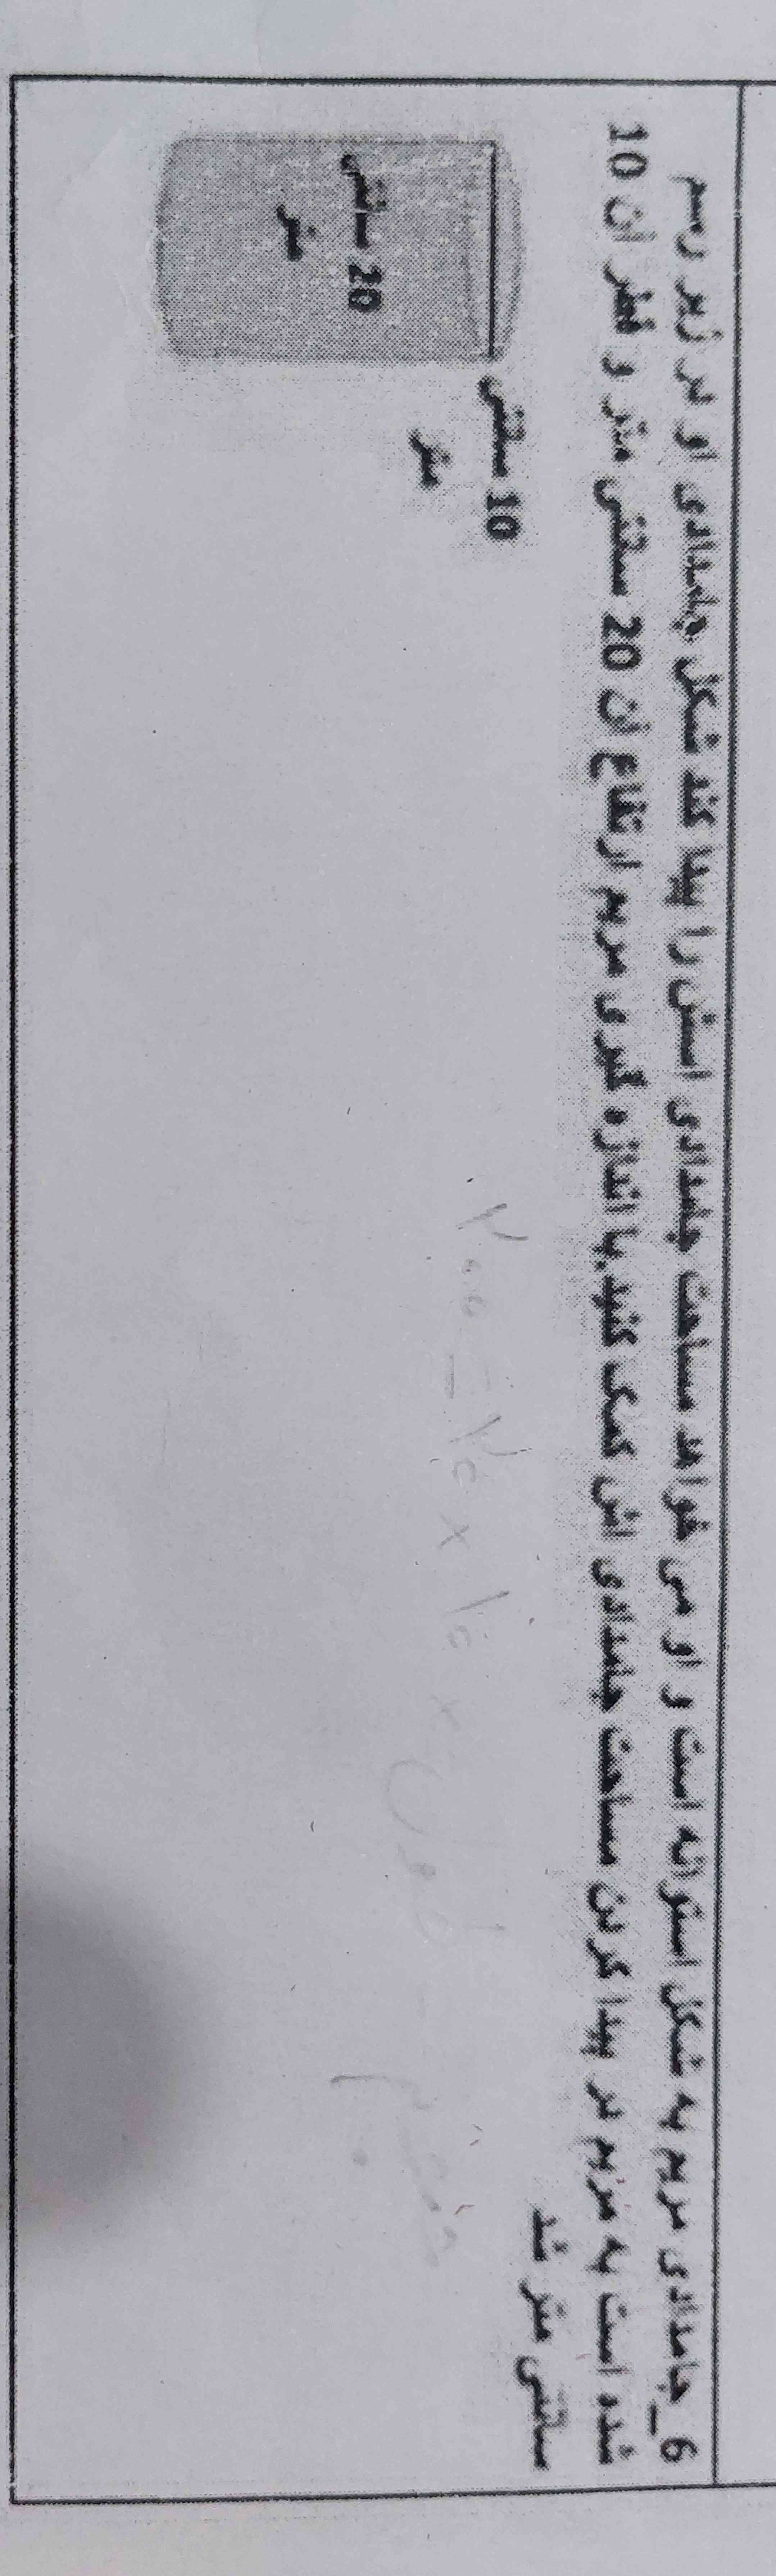 6_جامدادی مریم به شکل استوانه است و او می خواهد مساحت جامدادی اش را پیدا کند شکل جامدادی او در زیر رسم
شده است به مریم در پیدا کردن مساحت جامدادی اش کمک کنید.با اندازه گیری مریم ارتفاع ان 20 سانتی متر و قطر ان 10
سانتی متر شد
10 سانتی
متر
20 سانتی
متر
۲۰۰ = ۲۰ × ۱۰